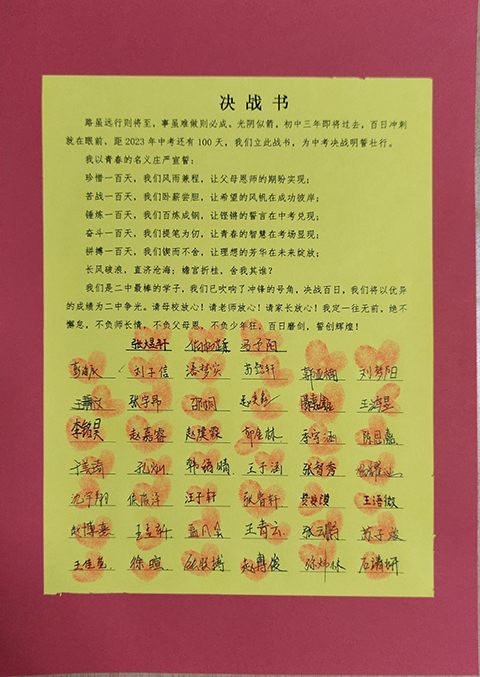 决战书
路虽远行则将至，事虽难做则必成。光阴似箭，初中三年即将过去，百日冲刺
就在眼前，距2023年中考还有100天，我们立此战书，为中考决战明誓壮行。
我以青春的名义庄严宣誓：
珍惜一百天，我们风雨兼程，让父母恩师的期盼实现；
苦战一百天，我们卧薪尝胆，让希望的风帆在成功彼岸；
锤炼一百天，我们百炼成钢，让铿锵的誓言在中考兑现；
奋斗一百天，我们提笔为仞，让青春的智慧在考场显现；
拼搏一百天，我们锲而不舍，让理想的芳华在未来绽放；
长风破浪，直济沧海；蟾宫折桂，舍我其谁？
我们是二中最棒的学子，我们已吹响了冲锋的号角，决战百日，我们将以优异
的成绩为二中争光。请母校放心！请老师放心！请家长放心！我定一往无前，绝不
懈怠，不负师长情，不负父母恩，不负少年狂，百日磨剑，誓创辉煌！
张煜轩 冯予阳
刘子信 潘梦实 刘梦阳
张宇昂 邵珂
李铭昊 赵嘉睿 赵漠霖 李宇涵 陈思鑫
孔灿 韩语晴 王子涵 张智秀
沈宇翔 侯俊泽 汪子轩 张睿轩 王语微
赵博熹 王孟轩 王青云 苏子焱
王佳艺 徐暄 赵冉俊 徐炳林 石清妍